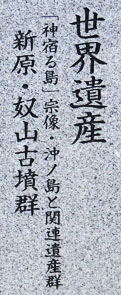 世界遺産
「神宿る島」宗像・沖ノ島と関連遺産群
新原・奴山古墳群